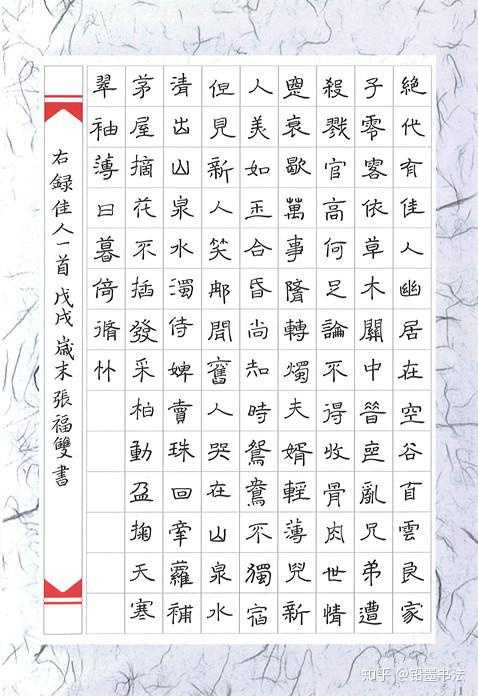 絕代有佳人幽居在空谷自雲良家
子零客依草木關中昔喪亂兄弟遭
殺戮官高何足論不得收骨肉世情
惡衰歇萬事隨轉燭夫婿輕薄兒新
人美如玉合昏尚知時鴛鴦不獨宿
但見新人笑那聞舊人哭在山泉水
清出山泉水濁侍婢賣珠回牽蘿補
茅屋摘花不插發采柏動盈掬天寒
翠袖薄日暮倚脩竹
右録佳人一首 戊戌歲末張福雙書
知乎 @铅墨书法